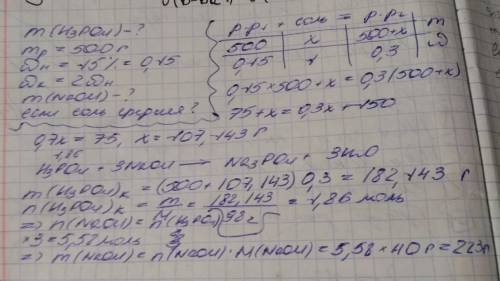 m(H₃PO₄)-?
mр = 500 г
ωн = 15% = 0,15
ωк = 2ωн
m(NaOH)-?
если соль средняя?
р-р₁ + соль = р-р₂
500 | x | 500+x | m
0,15 | 1 | 0,3 | ω
0,15×500+x = 0,3(500+x)
75+x = 0,3x+150
0,7x = 75, x = 107,143 г
1,86
H₃PO₄ + 3NaOH → Na₃PO₄ + 3H₂O
m(H₃PO₄)к = (500+107,143)0,3 = 182,143 г
n(H₃PO₄)к = m/ = 182,143/98г = 1,86 моль
⇒ n(NaOH) = n(H₃PO₄)
×3 = 5,58 моль
⇒ m(NaOH) = n(NaOH)·M(NaOH) = 5,58×40г = 223г